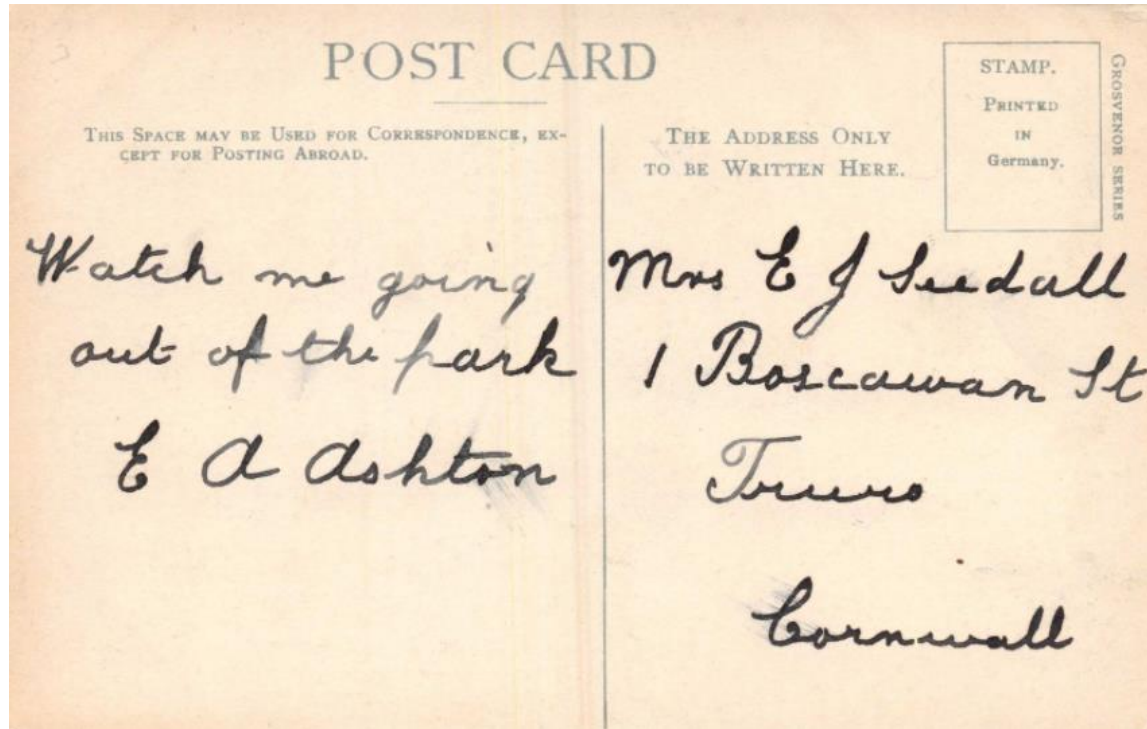 POST CARD
THIS SPACE MAY BE USED FOR CORRESPONDENCE, EX-
CEPT FOR POSTING ABROAD.
Watch me going
out of the park
E A Ashton
THE ADDRESS ONLY
TO BE WRITTEN HERE.
STAMP.
PRINTED
IN
Germany.
GROSVENOR SERIES
Mrs E J Seedall
1 Boscawan St
Truro
Cornwall